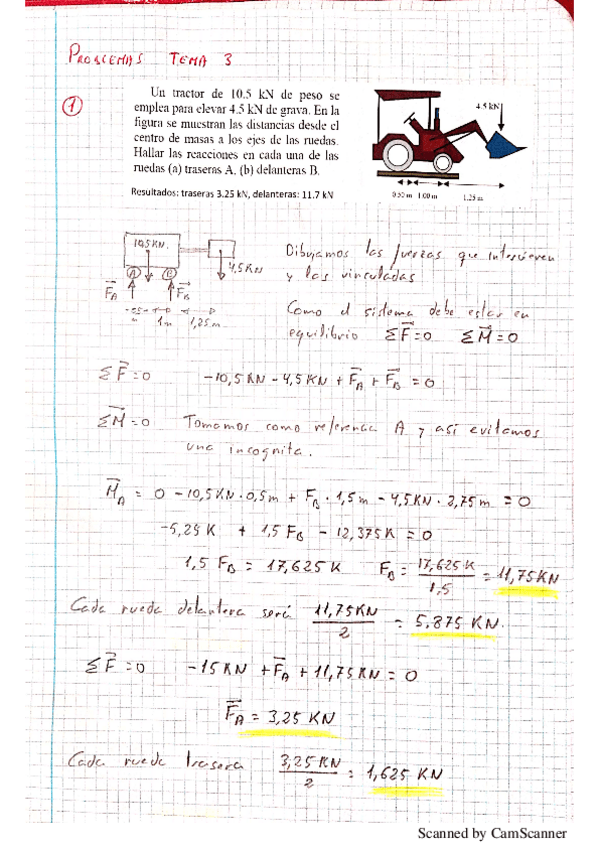 PROBLEMAS TEMA 3
1
Un tractor de 10.5 kN de peso se
emplea para elevar 4.5 kN de grava. En la
figura se muestran las distancias desde el
centro de masas a los ejes de las ruedas.
Hallar las reacciones en cada una de las
ruedas (a) traseras A, (b) delanteras B.
Resultados: traseras 3.25 kN, delanteras: 11.7 kN
4.5 kN
0.50 m 1.00 m 1.25 m
10,5 KN.
A B
4,5 KN
F_A F_B
0,5 m 1m 1,25m
Dibujamos las fuerzas que intervienen
y las vinculadas
Como el sistema debe estar en
equilibrio ΣF=0 ΣM=0
ΣF=0 -10,5 KN - 4,5 KN + F_A + F_B = 0
ΣM=0 Tomamos como referencia A y así evitamos
una incognita.
M_A = 0 - 10,5 KN · 0,5 m + F_B · 1,5 m - 4,5 KN · 2,75 m = 0
-5,25 K + 1,5 F_B - 12,375 K = 0
1,5 F_B = 17,625 K F_B = 17,625 K / 1,5 = 11,75 KN
Cada rueda delantera será 11,75 KN / 2 = 5,875 KN.
ΣF=0 -15 KN + F_A + 11,75 KN = 0
F_A = 3,25 KN
Cada rueda trasera 3,25 KN / 2 = 1,625 KN
Scanned by CamScanner